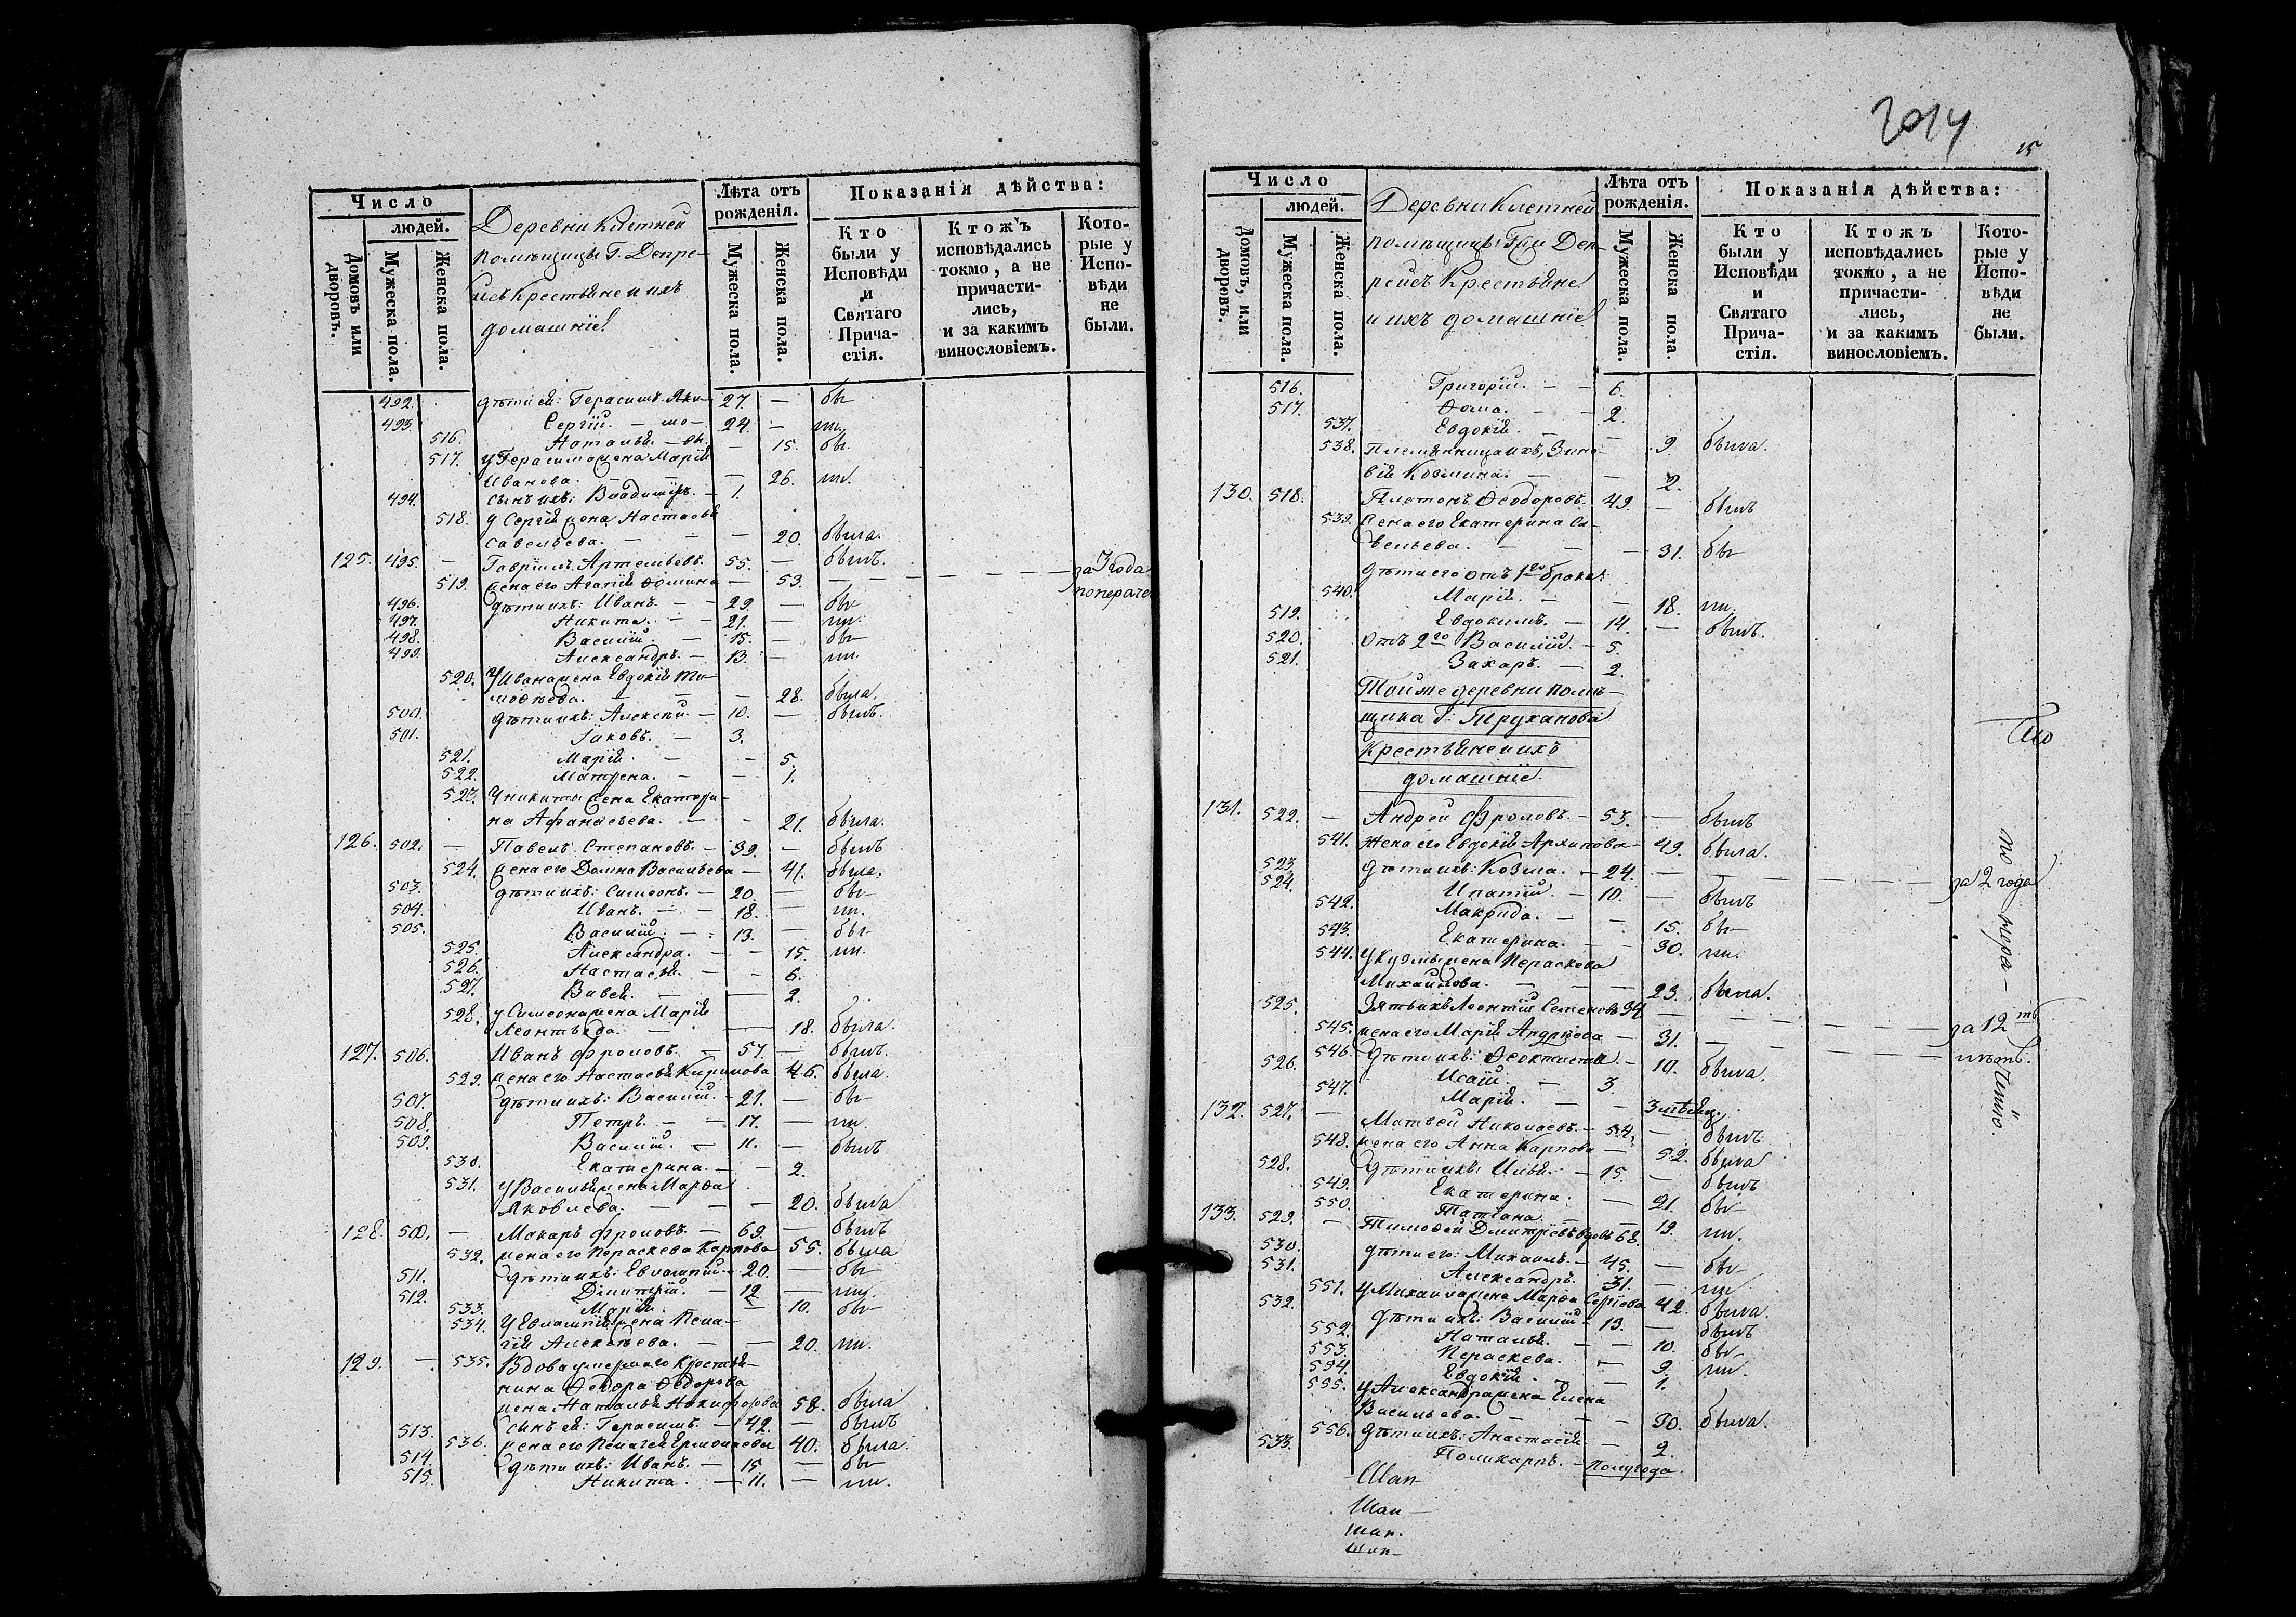 Число
людей.
Домовъ или дворовъ.
Мужеска пола.
Женска пола.
Деревни Клетней
помѣщицы Г. Депре-
крестьяне и ихъ
домашніе
Лѣта отъ рожденія.
Мужеска пола.
Женска пола.
Показанія дѣйства:
Кто были у Исповѣди и Святаго Прича-стія.
Ктожъ исповѣдались токмо, а не причасти-лись, и за какимъ винословіемъ.
Кото-рые у Испо-вѣди не были.
492. дѣти ея: Герасимъ. 27. — бы
493. Сергій. — 24. — ли.
516. Наталья. — 15. бы
517. у Герасима жена Марія
Иванова. — — 26. ли.
494. сынъ ихъ: Владиміръ. — 1.
518. у Сергія жена Настасья
Савельева. — — — 20. была.
125. 495. — Гавріилъ Артемьевъ. 55. — былъ.
519. жена его Агафія Фомина — 53. — — — — за 3 года
496. дѣти ихъ: Иванъ. — 29. — бы
497. Никита. — — 21. — ли.
498. Василій. — 15. — бы
499. Александръ. — 13. — ли.
520. У Ивана жена Евдокія Ти-
моѳѣева. — — — 28. была.
500. дѣти ихъ: Алексѣй. — 10. — былъ.
501. Іаковъ. — 3.
521. Марія. — — 5.
522. Матрена. — — 1.
523. У Никиты жена Екатери-
на Афанасьева. — — 21. была.
126. 502. — Павелъ Степановъ. — 39. — былъ
524. жена его Домна Васильева — 41. была.
503. дѣти ихъ: Симеонъ. — 20. — бы
504. Иванъ. — — 18. — ли.
505. Василій. — 13. — бы
525. Александра. — — 15. ли.
526. Настасья. — — 6.
527. — — 2.
528. у Симеона жена Марія
Леонтьева. — — 18. была.
127. 506. Иванъ Фроловъ. — 57. — былъ.
529. жена его Настасья Кирилова 46. была.
507. дѣти ихъ: Василій. — 21. — бы
508. Петръ. — — 17. — ли.
509. Василій. — 11. — былъ
530. Екатерина. — — 2.
531. У Василья жена Марѳа
Яковлева. — — — 20. была
128. 510. — Макаръ Фроловъ. — 69. — былъ
532. жена его Пераскева Карпова 55. была
511. дѣти ихъ: Евлампій. — 20. — бы
512. Дмитрій. — 12 — ли.
533. Марія. — 10. бы
534. У Евлампія жена Пела-
гія Алексѣева. — — 20. ли.
129. — 535. Вдова умершаго крестья-
нина Ѳедора Ѳедорова
жена Наталья Никифорова 58. была
513. сынъ ея: Герасимъ. — 42. — былъ
536. жена его Пелагея Ермолаева 40. была.
514. дѣти ихъ: Иванъ. — 15. — бы
515. Никита. — 11. — ли.
2014
15
Число
людей.
Домовъ, или дворовъ.
Мужеска пола.
Женска пола.
Деревни Клетней
помѣщицы Гжи Деп-
рейсъ Крестьяне
и ихъ домашніе
Лѣта отъ рожденія.
Мужеска пола.
Женска пола.
Показанія дѣйства:
Кто были у Исповѣди и Святаго Прича-стія.
Ктожъ исповѣдались токмо, а не причасти-лись, и за какимъ винословіемъ.
Кото-рые у Испо-вѣди не были.
516. Григорій. — — 6.
517. Ѳома. — — 2.
537. Евдокія. — — 9. была.
538. Племянница ихъ, Зино-
вія Козмина. — — 2.
130. 518. Платонъ Ѳеодоровъ. 49. — былъ
539. жена его Екатерина Са-
вельева. — — — 31. бы
дѣти его отъ 1го брака:
540. Марія. — — 18. ли.
519. Евдокимъ. — 14. — былъ.
520. отъ 2го Василій. — 5.
521. Захаръ. — 2.
Той же деревни помѣ-
щика Г: Труханова
Крестьяне и ихъ
домашніе.
131. 522. — Андрей Фроловъ. — 53. — былъ
541. жена его Евдокія Архипова — 49. была.
523. дѣти ихъ: Козма. — 24. — — — — за 2 года
524. Ипатій — 10. — былъ
542. Макрида. — — 15. бы
543. Екатерина. — — 30. ли.
544. у Кузмы жена Пераскева
Михайлова. — — — 23. была.
525. Зять ихъ Леонтій Семеновъ 34 — — — — за 12ть
545. жена его Марія Андреева — 31. — — — — лѣтъ.
546. дѣти ихъ: Ѳеоктиста. — 10. была.
526. Исаій. — 3.
547. Марія. — — 3 мѣсяц.
132. 527. — Матвей Николаевъ. — 54. — былъ.
548. жена его Анна Карпова — 52. была
528. дѣти ихъ: Илья. — 15. — былъ
549. Екатерина. — 21. бы
550. Татіана. — — 19. ли.
133. 529. — Тимоѳей Дмитріевъ вдовъ 68.
530. дѣти его: Михаилъ. — 45. — бы
531. Александръ. 31. — ли
551. у Михаила жена Марѳа Сергіева 42. была.
532. дѣти ихъ: Василій — 13. — былъ
552. Наталья. — — 10. бы
553. Пераскева. — 9. ли.
554. Евдокія. — — 1.
555. у Александра жена Елена
Васильева. — — — 30. была.
556. дѣти ихъ: Анастасія — 2.
533. Поликарпъ. — полугода.